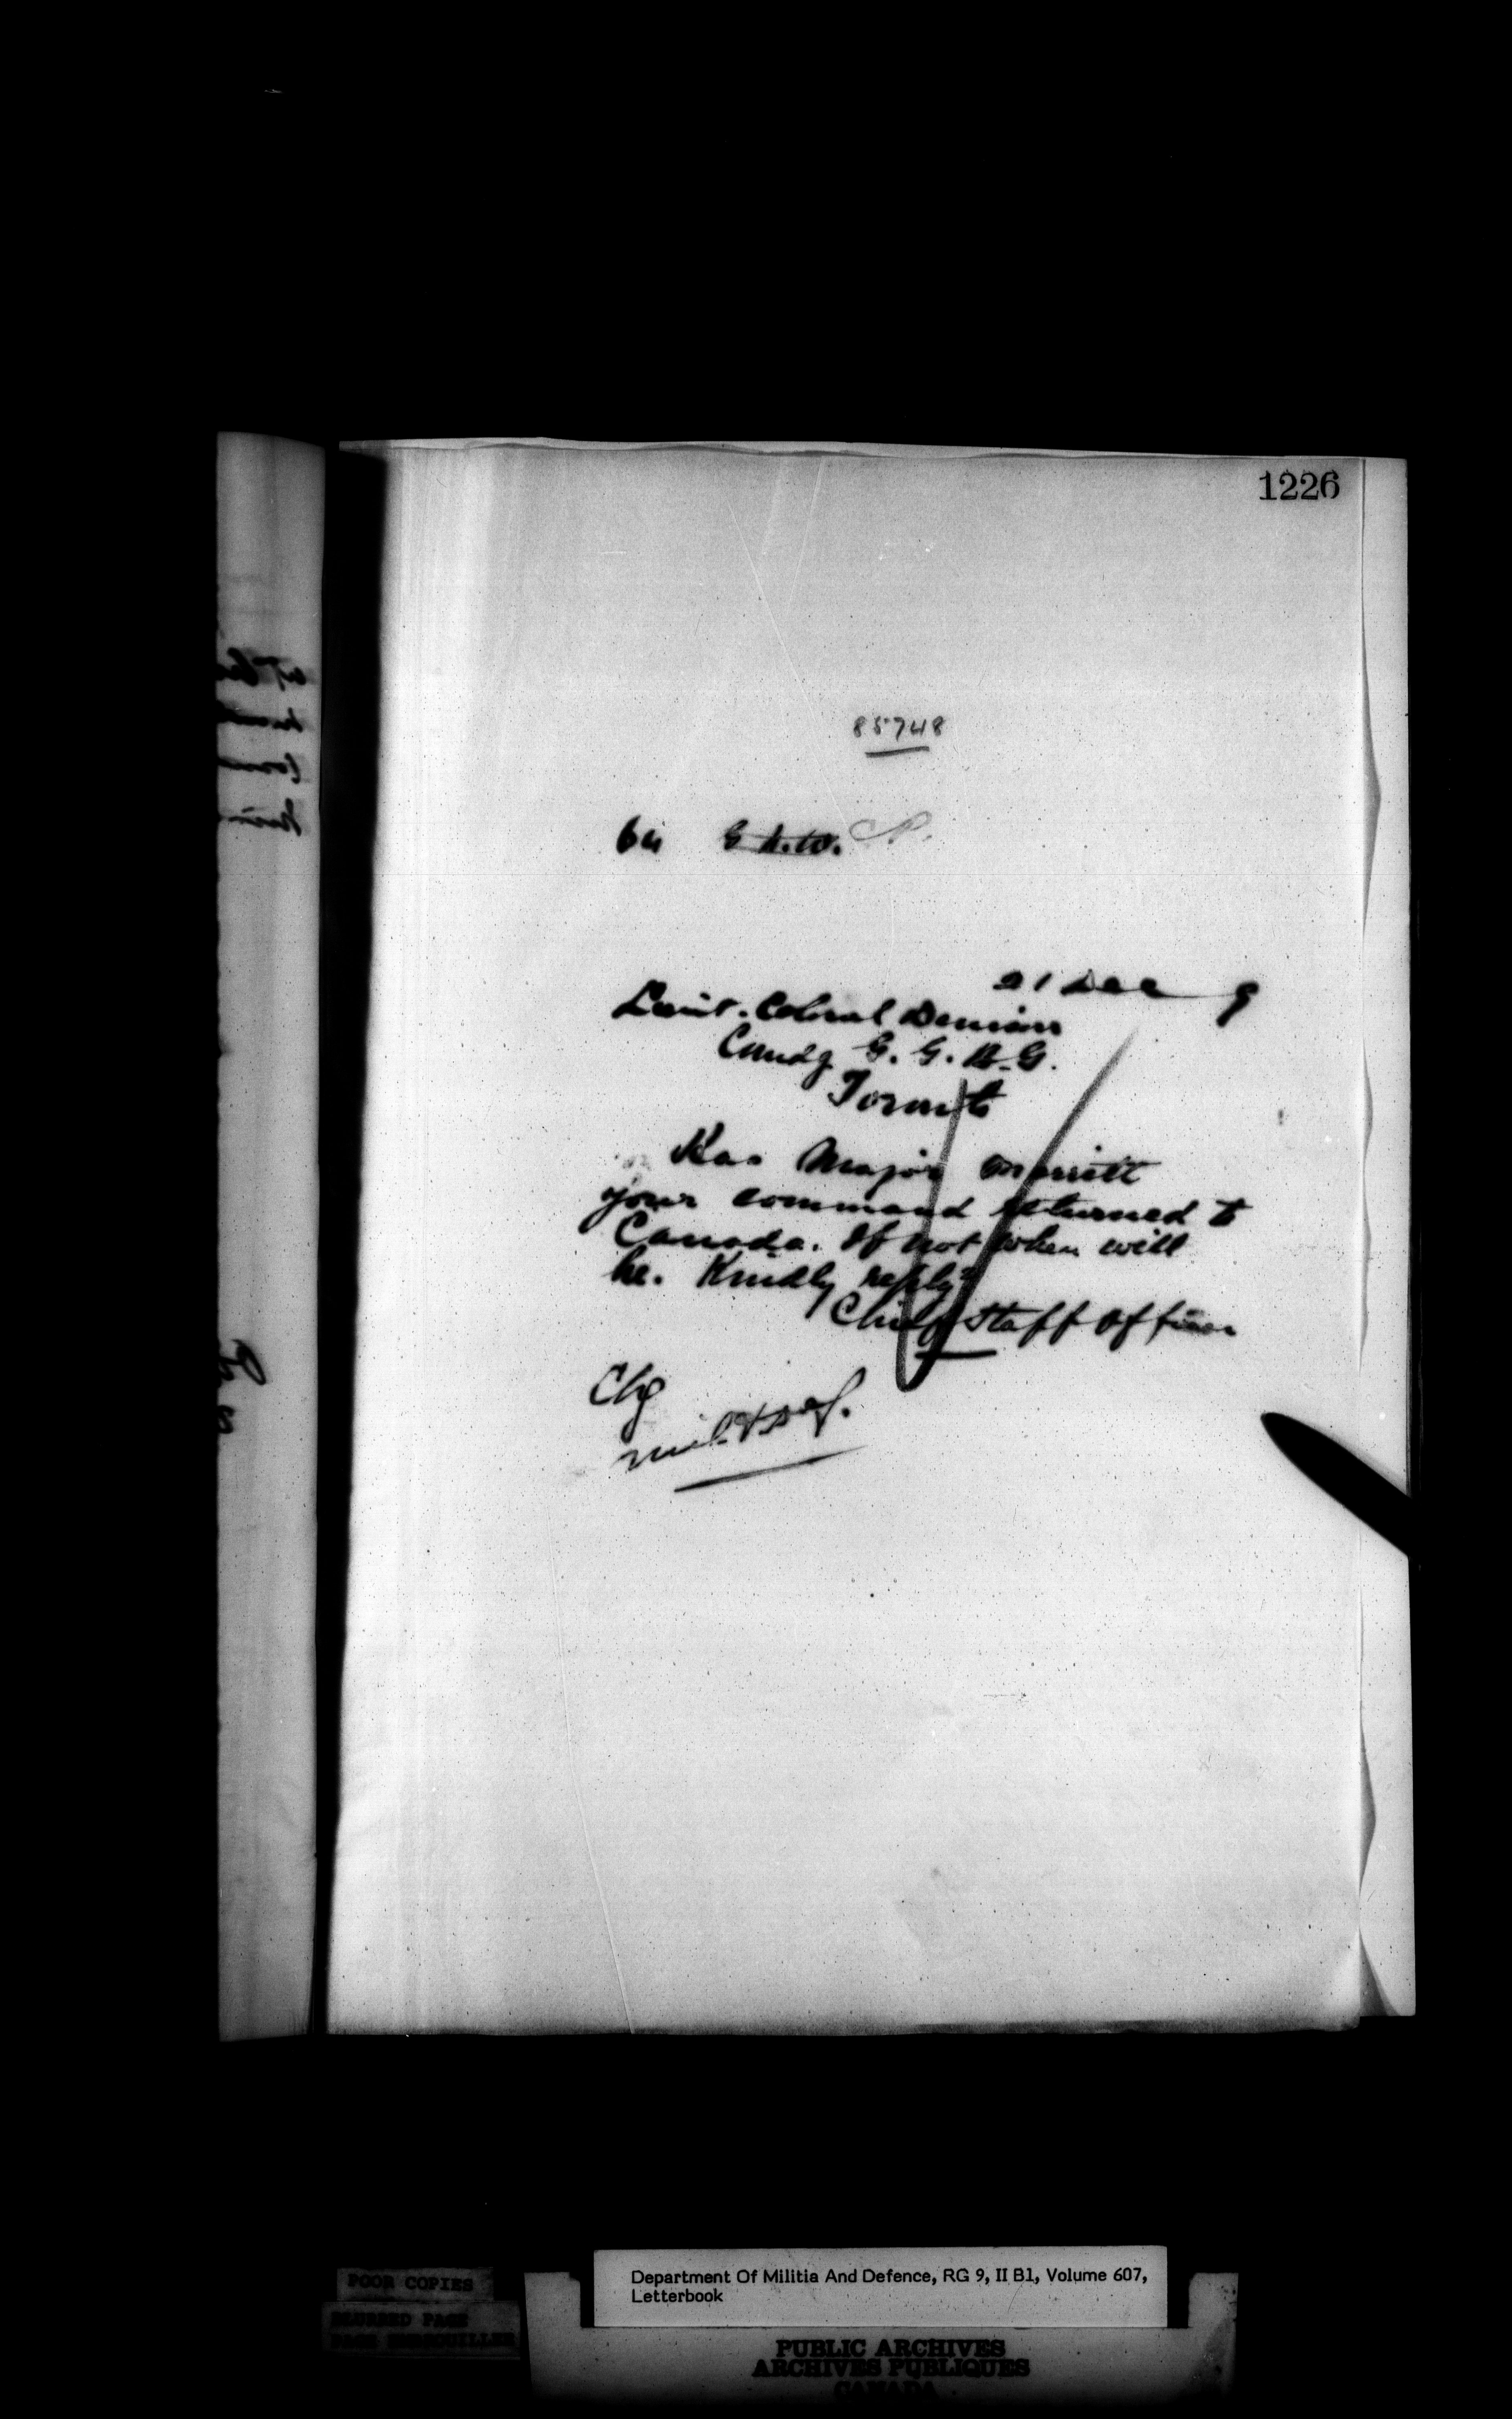 1226
85748
64 G.N.W.
21 Dec 9
Lieut. Colonel Denison
Comdg G. G. B. G.
Toronto
Has Major Merritt
your command returned to
Canada. If not when will
he. Kindly reply?
Chief Staff Officer
Chg
Mil. & Def.
POOR COPIES
BLURRED PAGE
PAGE EMBROUILLEE
Department Of Militia And Defence, RG 9, II B1, Volume 607,
Letterbook
PUBLIC ARCHIVES
ARCHIVES PUBLIQUES
CANADA